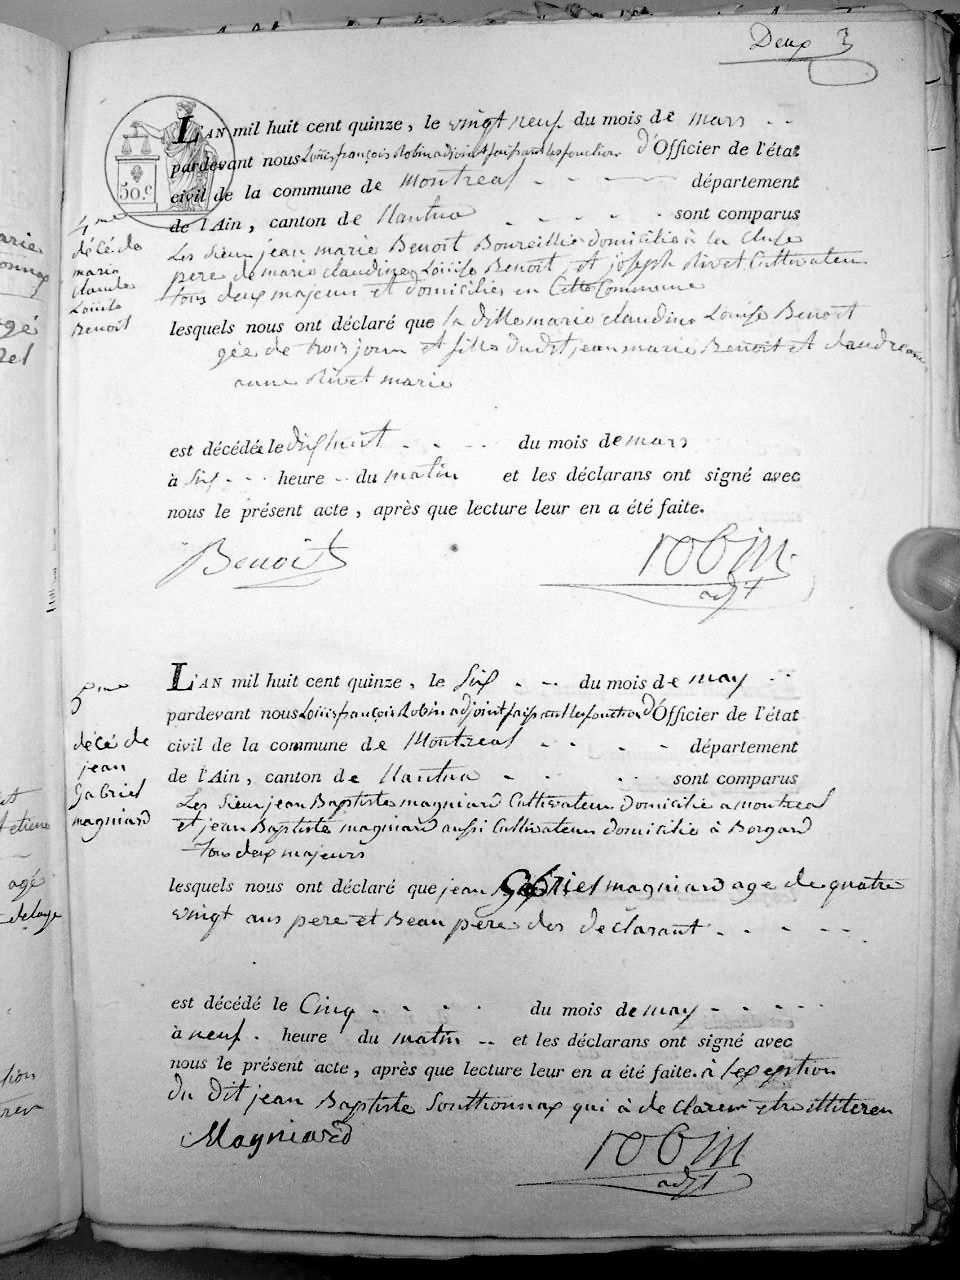 Deux
50.c
L'AN mil huit cent quinze, le vingt neuf du mois de mars
pardevant nous Louis françois Robin adjoint faisant les fonction d'Officier de l'état
civil de la commune de Montreal département
de l'Ain, canton de Nantua sont comparus
4me
décé de
maria
Claude
Louise
Benoit
Les Sieur jean marie Benoit domicilié à la Cluse
pere de marie claudine Louise Benoit, et joseph Rivet Cultivateur
tous deux majeurs et domiciliés en Cette Commune
lesquels nous ont déclaré que la ditte marie claudine Louise Benoit
gée de trois jours et fille dudit jean marie Benoit et
anne Rivet marie
est décédée le dix huit du mois de mars
à six heure du matin et les déclarans ont signé avec
nous le présent acte, après que lecture leur en a été faite.
Benoit
robin
adjt
L'AN mil huit cent quinze, le six du mois de may
pardevant nous Louis françois Robin adjoint faisant les fonction d'Officier de l'état
civil de la commune de Montreal département
de l'Ain, canton de Nantua sont comparus
5me
décé de
jean
Gabriel
magniard
Les Sieur jean Baptiste magniard Cultivateur domicilié a montreal
et jean Baptiste magniard aussi Cultivateur domicilié à Borgard
tous deux majeurs
lesquels nous ont déclaré que jean Gabriel magniard age de quatre
vingt ans pere et Beau pere des declarant
est décédé le Cinq du mois de may
à neuf heure du matin et les déclarans ont signé avec
nous le présent acte, après que lecture leur en a été faite. à lexeption
du dit jean Baptiste Souttionnax qui à declarer etre
Magniard
robin
adjt